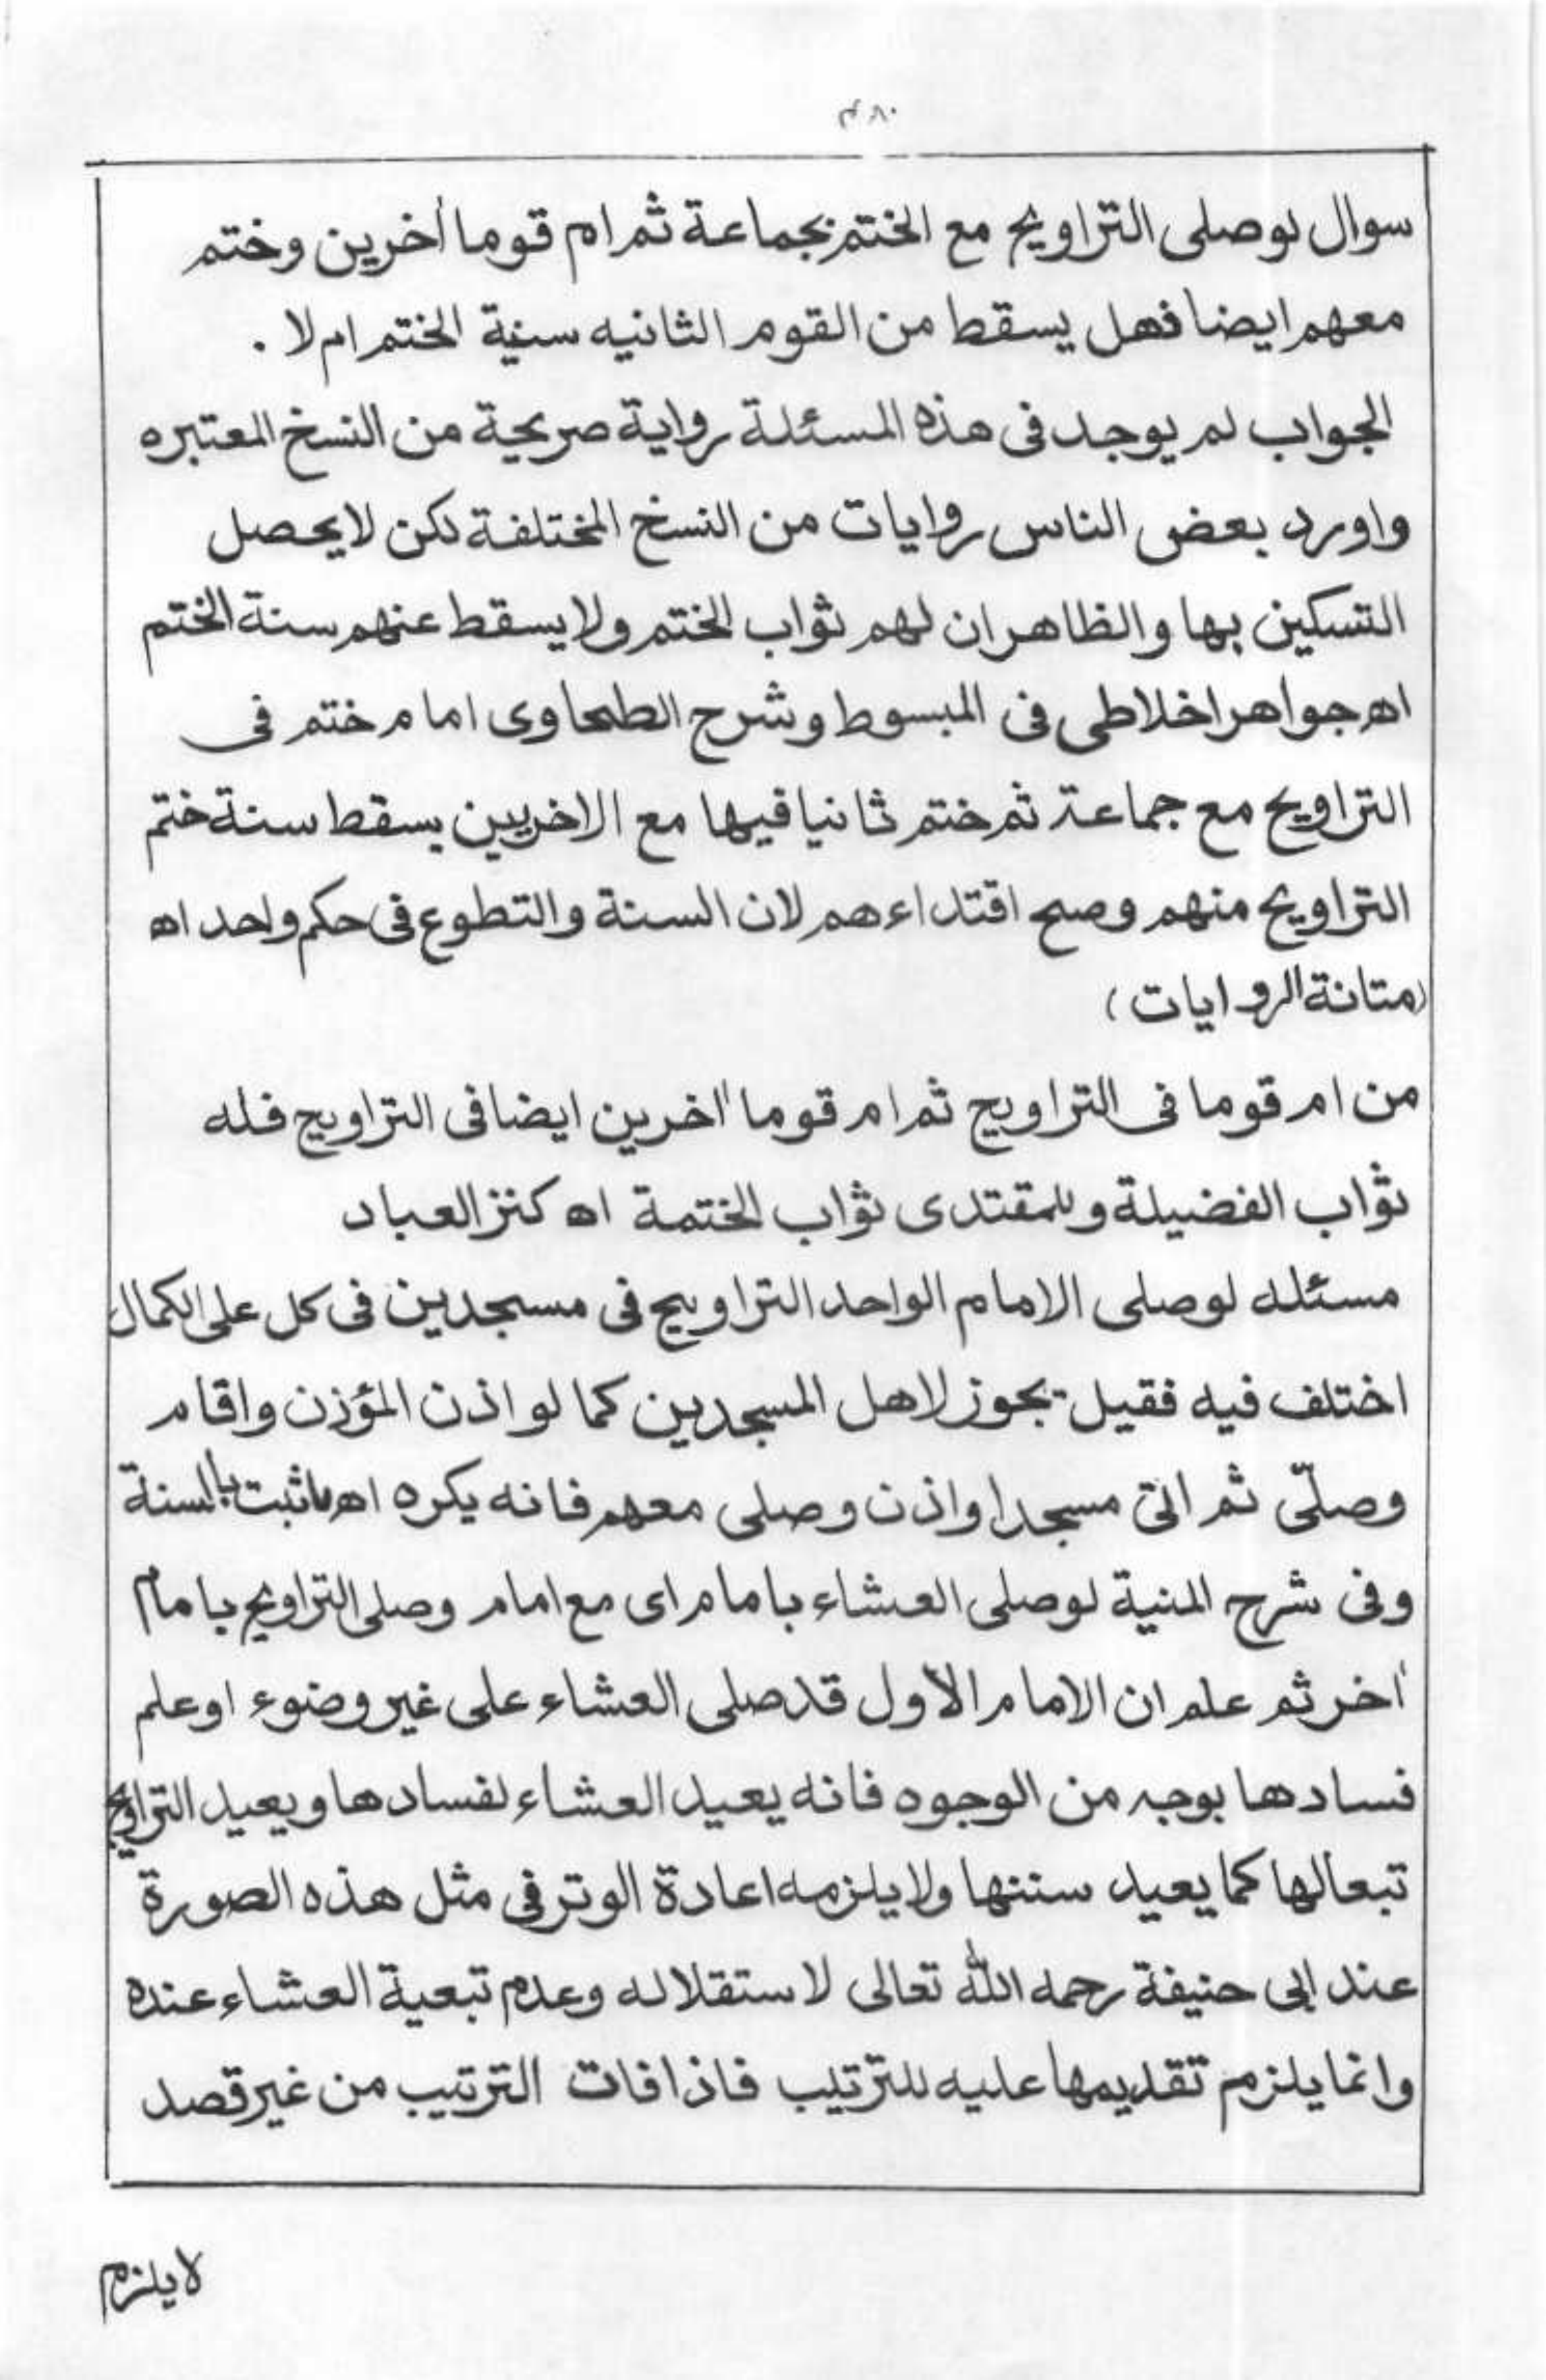 ۴۸۰
سوال لوصلى التراويح مع الختم بجماعة ثم ام قوما أخرين وختم
معهم ايضا فهل يسقط من القوم الثانيه سنية الختم ام لا .
الجواب لم يوجد فى هذه المسئلة رواية صريحة من النسخ المعتبره
واورد بعض الناس روايات من النسخ المختلفة لكن لا يحصل
التسكين بها والظاهر ان لهم ثواب الختم ولا يسقط عنهم سنة الختم
اه جواهر اخلاطى فى المبسوط وشرح الطحاوى امام ختم فى
التراويح مع جماعة ثم ختم ثانيا فيها مع الاخريين يسقط سنة ختم
التراويح منهم وصح اقتداءهم لان السنة والتطوع فى حكم واحد اه
(متانة الروايات)
من ام قوما فى التراويح ثم ام قوما اخرين ايضا فى التراويح فله
ثواب الفضيلة وللمقتدى ثواب الختمة اه كنز العباد
مسئله لوصلى الامام الواحد التراويح فى مسجدين فى كل على الكمال
اختلف فيه فقيل يجوز لاهل المسجدين كما لو اذن المؤزن واقام
وصلّى ثم اتى مسجدا واذن وصلى معهم فانه يكره اه ماثبت بالسنة
وفى شرح المنية لوصلى العشاء بامام اى مع امام وصلى التراويح بامام
أخر ثم علم ان الامام الأول قد صلى العشاء على غير وضوء او علم
فسادها بوجه من الوجوه فانه يعيد العشاء لفسادها ويعيد التراويح
تبعا لها كما يعيد سننها ولا يلزمه اعادة الوتر فى مثل هذه الصورة
عند ابى حنيفة رحمه الله تعالى لاستقلاله وعدم تبعية العشاء عنده
وانما يلزم تقديمها عليه للترتيب فاذا فات الترتيب من غير قصد
لا يلزم